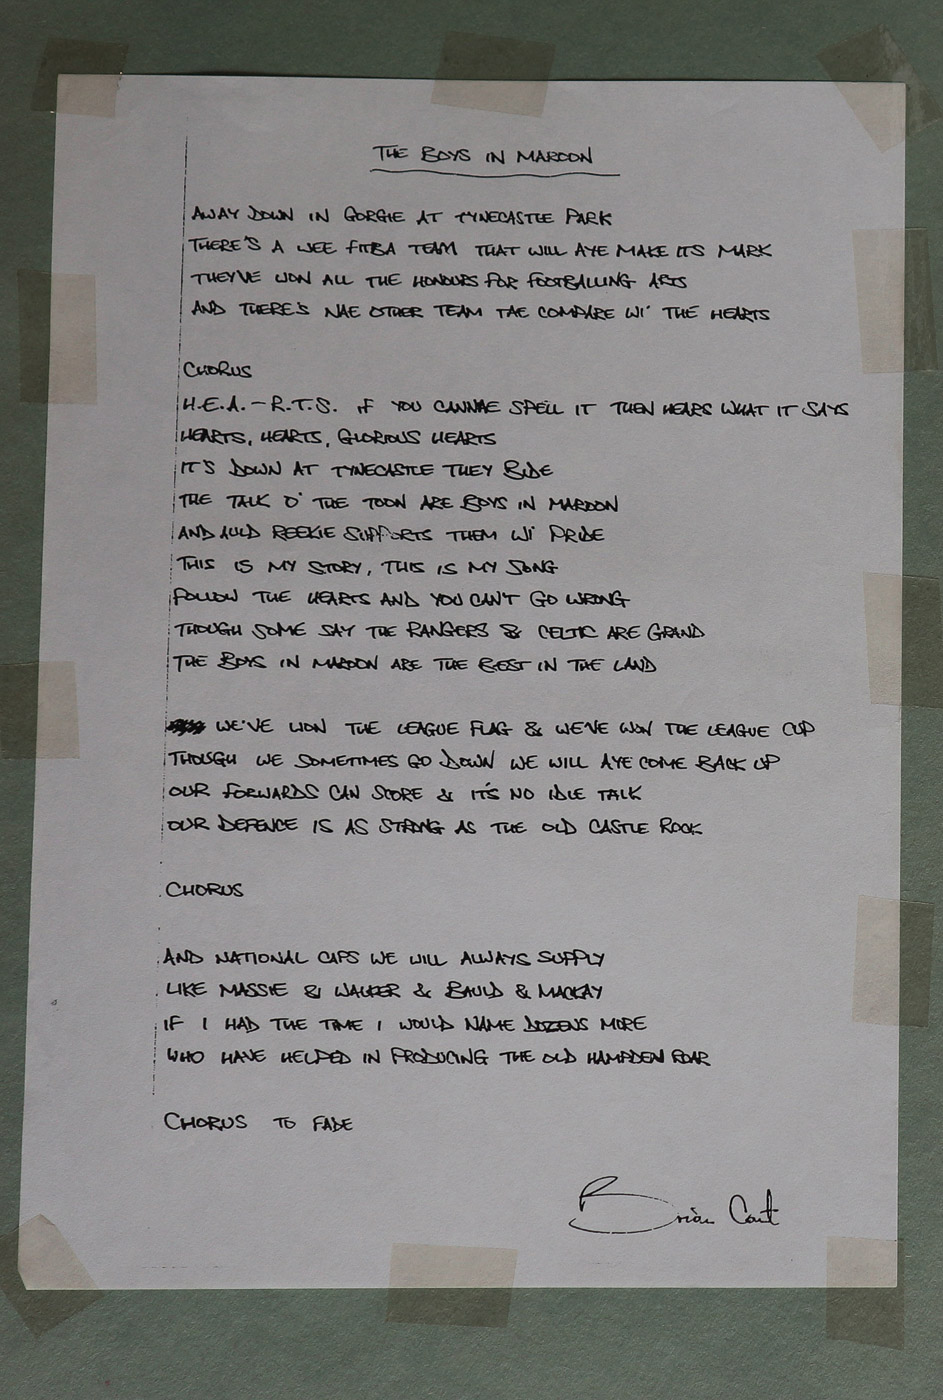 THE BOYS IN MAROON
AWAY DOWN IN GORGIE AT TYNECASTLE PARK
THERE'S A WEE FITBA TEAM THAT WILL AYE MAKE ITS MARK
THEY'VE WON ALL THE HONOURS FOR FOOTBALLING ARTS
AND THERE'S NAE OTHER TEAM TAE COMPARE WI' THE HEARTS
CHORUS
H.E.A. - R.T.S. IF YOU CANNAE SPELL IT THEN HEARS WHAT IT SAYS
HEARTS, HEARTS, GLORIOUS HEARTS
IT'S DOWN AT TYNECASTLE THEY BIDE
THE TALK O' THE TOON ARE BOYS IN MAROON
AND AULD REEKIE SUPPORTS THEM WI' PRIDE
THIS IS MY STORY, THIS IS MY SONG
FOLLOW THE HEARTS AND YOU CAN'T GO WRONG
THOUGH SOME SAY THE RANGERS & CELTIC ARE GRAND
THE BOYS IN MAROON ARE THE BEST IN THE LAND
WE'VE WON THE LEAGUE FLAG & WE'VE WON THE LEAGUE CUP
THOUGH WE SOMETIMES GO DOWN WE WILL AYE COME BACK UP
OUR FORWARDS CAN SCORE & IT'S NO IDLE TALK
OUR DEFENCE IS AS STRONG AS THE OLD CASTLE ROCK
CHORUS
AND NATIONAL CAPS WE WILL ALWAYS SUPPLY
LIKE MASSIE & WALKER & BAULD & MACKAY
IF I HAD THE TIME I WOULD NAME DOZENS MORE
WHO HAVE HELPED IN PRODUCING THE OLD HAMPDEN ROAR
CHORUS TO FADE
Brian